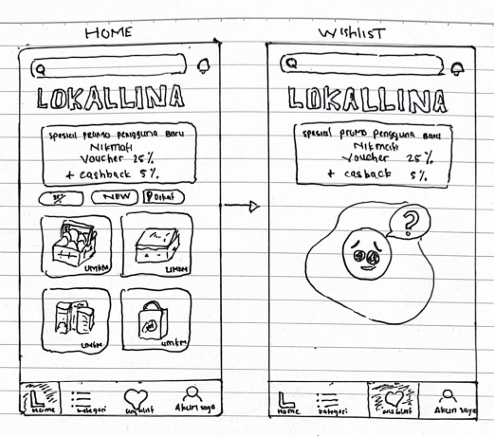 HOME
LOKALLINA
spesial promo pengguna baru
Nikmati
Voucher 25%
+ cashback 5%
NEW
UMKM
UMKM
UMKM
UMKM
Home
kategori
wishlist
Akun saya
WishlisT
LOKALLINA
spesial promo pengguna baru
Nikmati
Voucher 25%
+ cashback 5%.
?
Home
kategori
wishlist
Akun saya